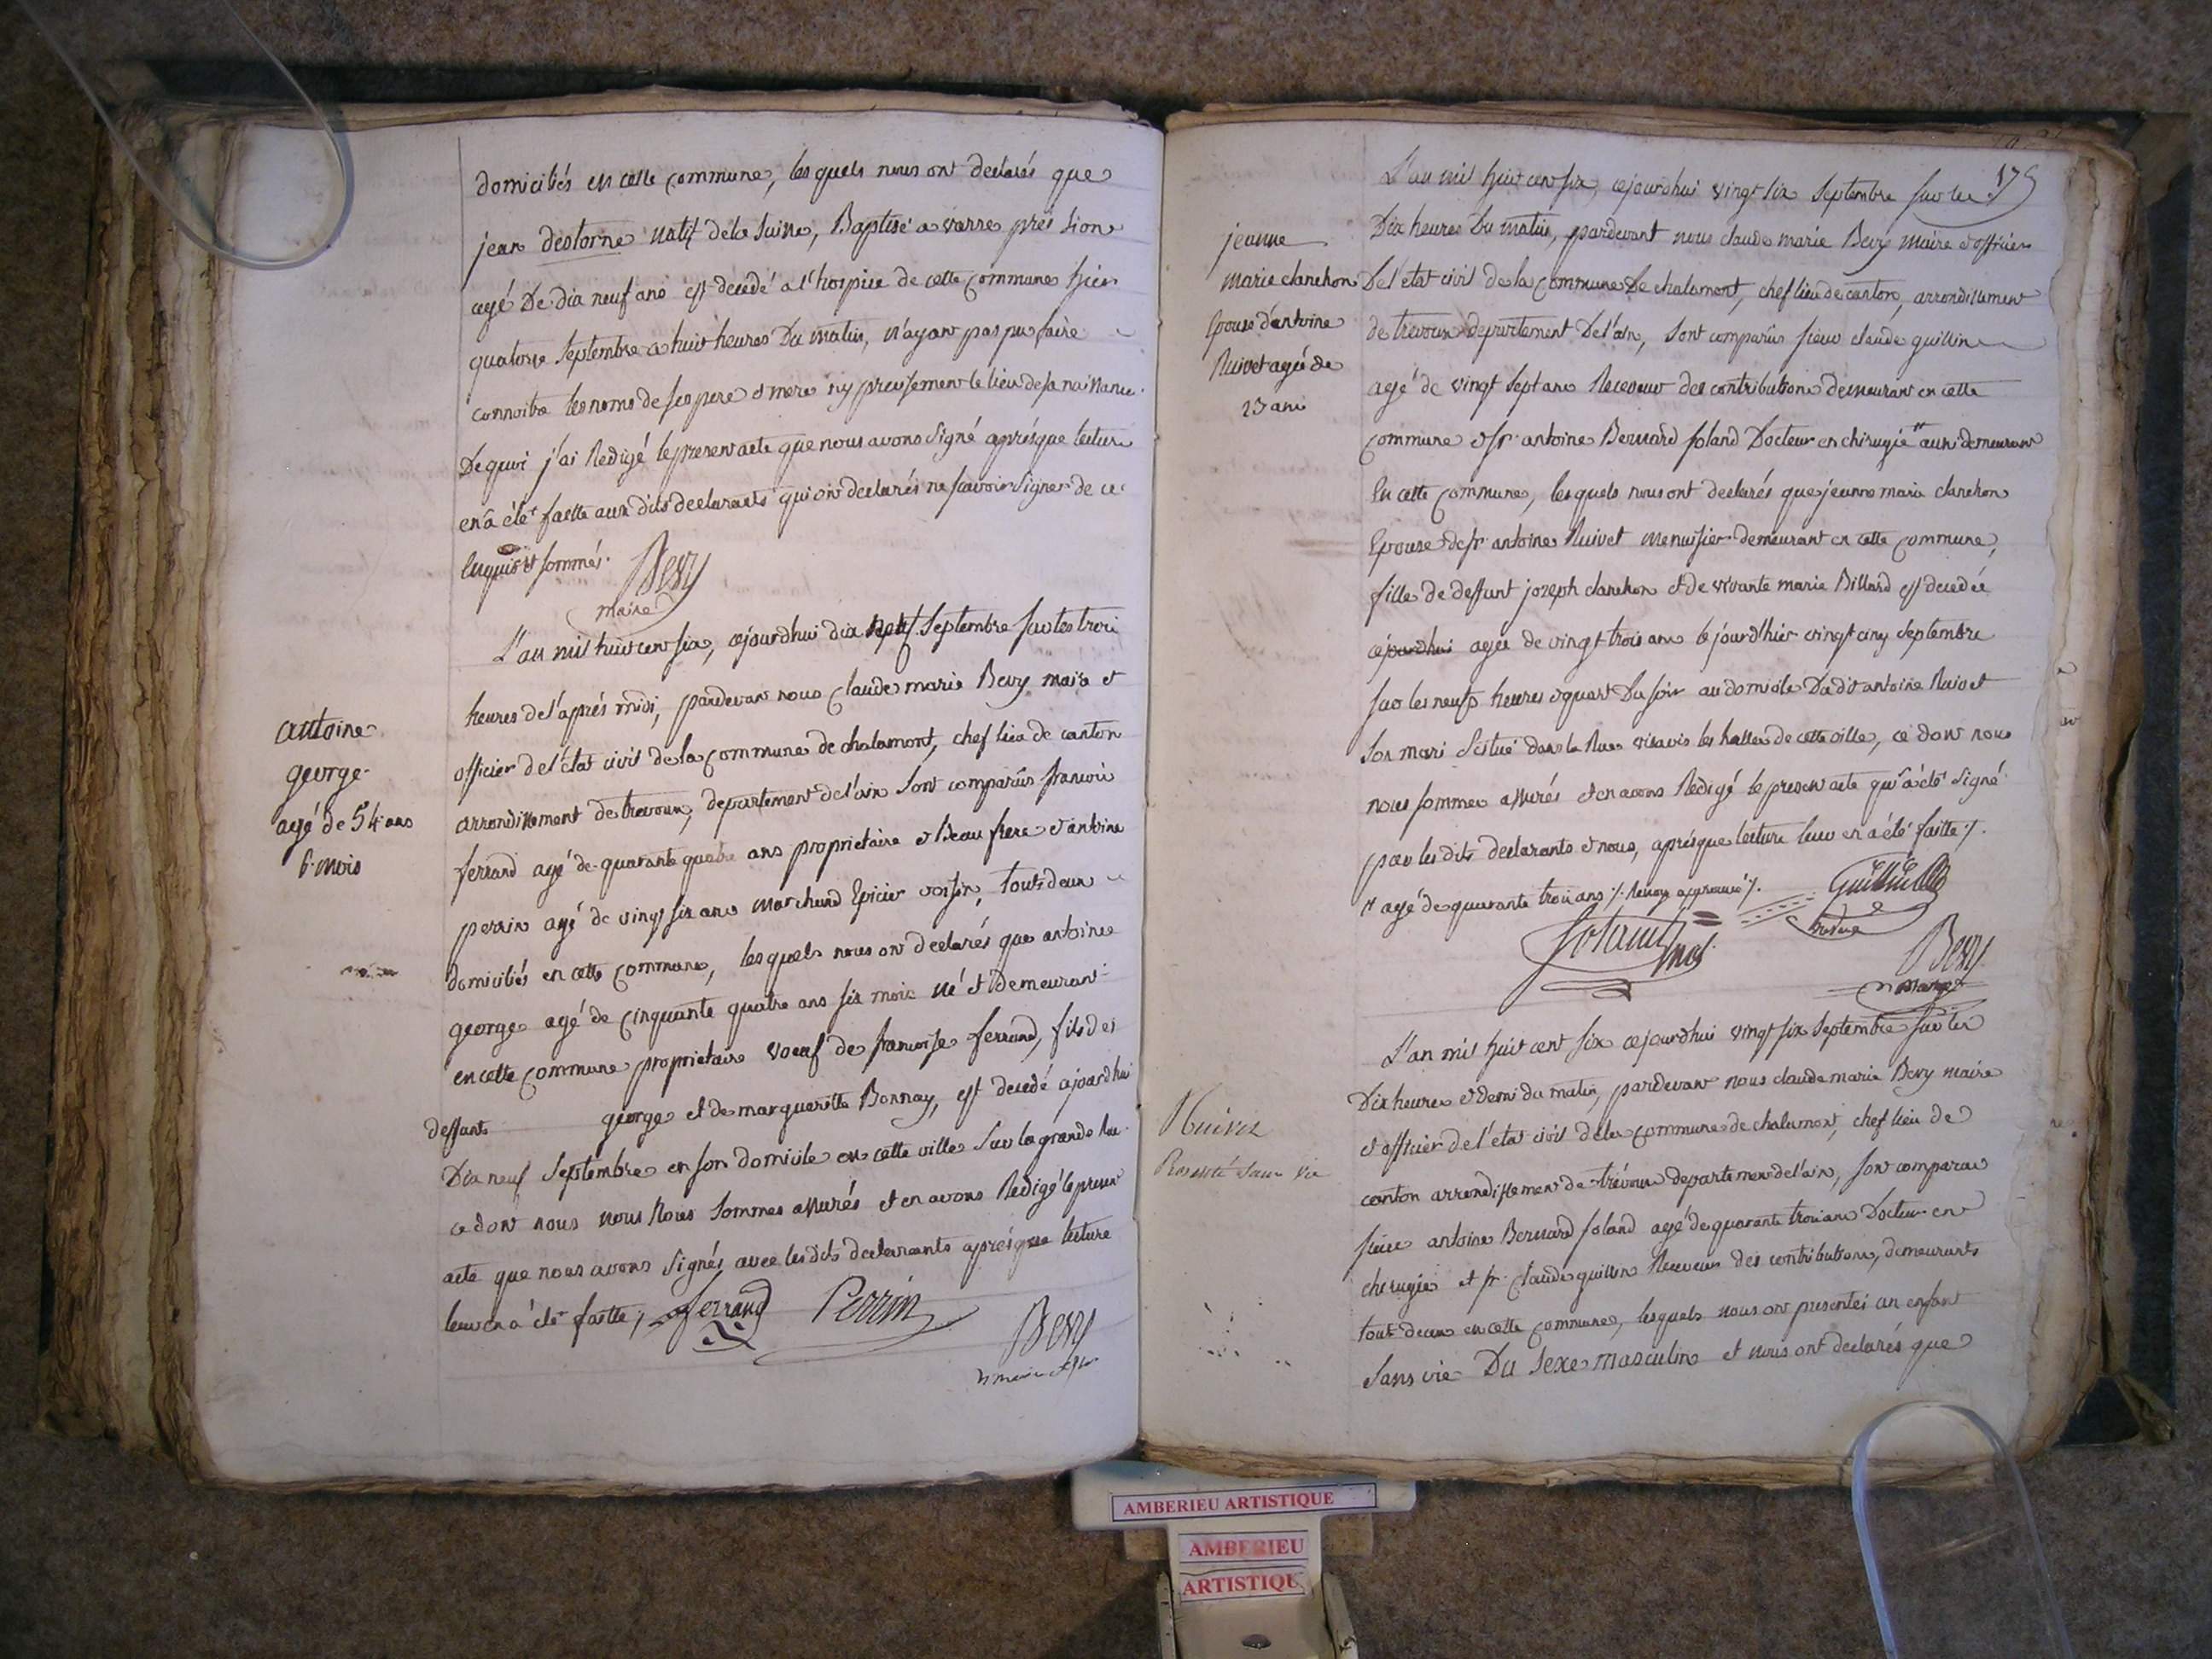 domiciliés en cette commune, les quels nous ont declarés que
jean destorne natif de la Suisse, Baptisé a varre près Sion
agé De dix neuf ans est decedé a l'hospice de cette commune hier
quatorze Septembre a huit heures Du matin, n'ayant pas pu faire
connoitre les noms de ses pere et mere ny precisement le lieu de sa naissance.
De quoi j'ai Redigé le present acte que nous avons signé aprésque lecture
en a été faitte aux dits declarants qui ont declarés ne scavoir signer de ce
Enquis et sommés.
Bevy
maire
antoine
george
agé de 54 ans
6 mois
L'an mil huit cent six, cejourdhui dix neuf Septembre sur les trois
heures de l'aprés midi, pardevant nous Claude marie Bevy maire et
officier de l'état civil de la commune de chalamont, chef lieu de canton
arrondissement de trevoux, departement de l'ain Sont comparûs francois
ferrand agé de quarante quatre ans proprietaire et Beau frere et antoine
perrin agé de vingt six ans marchand Epicier voisin, touts deux
domiciliés en cette commune, les quels nous ont declarés que antoine
george agé de cinquante quatre ans six mois né et demeurant
en cette commune proprietaire voeuf de francoise ferrand, fils de
deffunt george et de margueritte Bonnay, est decedé ajourdhui
Dix neuf Septembre en son domicile en cette ville Sur la grande Rue
ce dont nous nous Nous Sommes assurés et en avons Redigé le present
acte que nous avons Signés avec les dits declarants aprésque lecture
leur en a été faitte,
ferrand Perrin
Bevy
175
jeanne
marie clanchon
Epouse d'antoine
Ruivet agée de
23 ans
L'an mil huit cent six, cejourdhui vingt six Septembre sur les
Dix heures Du matin, pardevant nous claude marie Bevy maire et officier
De l'etat civil de la commune De chalamont, chef lieu de canton, arrondissement
de trevoux departement De l'ain, Sont comparûs sieur claude guillin
agé de vingt Sept ans Receveur des contributions demeurant en cette
commune et sr. antoine Bernard soland Docteur en chirugie aussi demeurant
En cette commune, les quels nous ont declarés que jeanne marie clanchon
Epouse de sr. antoine Ruivet menuisier demeurant en cette commune,
fille de deffunt joseph clanchon et de vivante marie Billard est decedée
cejourdhui agée de vingt trois ans le jourd'hier vingt cinq Septembre
sur les neufs heures et quart Du soir au domicile Dudit antoine Ruivet
Son mari Scitué dans la Rue visavis les halles de cette ville, ce dont nous
nous sommes assurés et en avons Redigé le present acte qui a été signé
par les dits declarants et nous, aprésque lecture leur en a été faitte ./.
agé de quarante trois ans ./. Renvoy approuvé ./.
Guillin
Soland
Bevy
maire
Ruivet
Presenté Sans vie
L'an mil huit cent six cejourdhui vingt six Septembre sur les
Dix heures et demi du matin, pardevant nous claude marie Bevy maire
et officier de l'etat civil de la commune de chalamont, chef lieu de
canton arrondissement de trévoux departement de l'ain, sont comparus
sieur antoine Bernard soland agé de quarante trois ans Docteur en
chirugie et sr. Claude guillin Receveur des contributions, demeurants
tout deux en cette commune, lesquels nous ont presentés un enfant
Sans vie Du Sexe masculin et nous ont declarés que
AMBERIEU ARTISTIQUE
AMBERIEU
ARTISTIQU